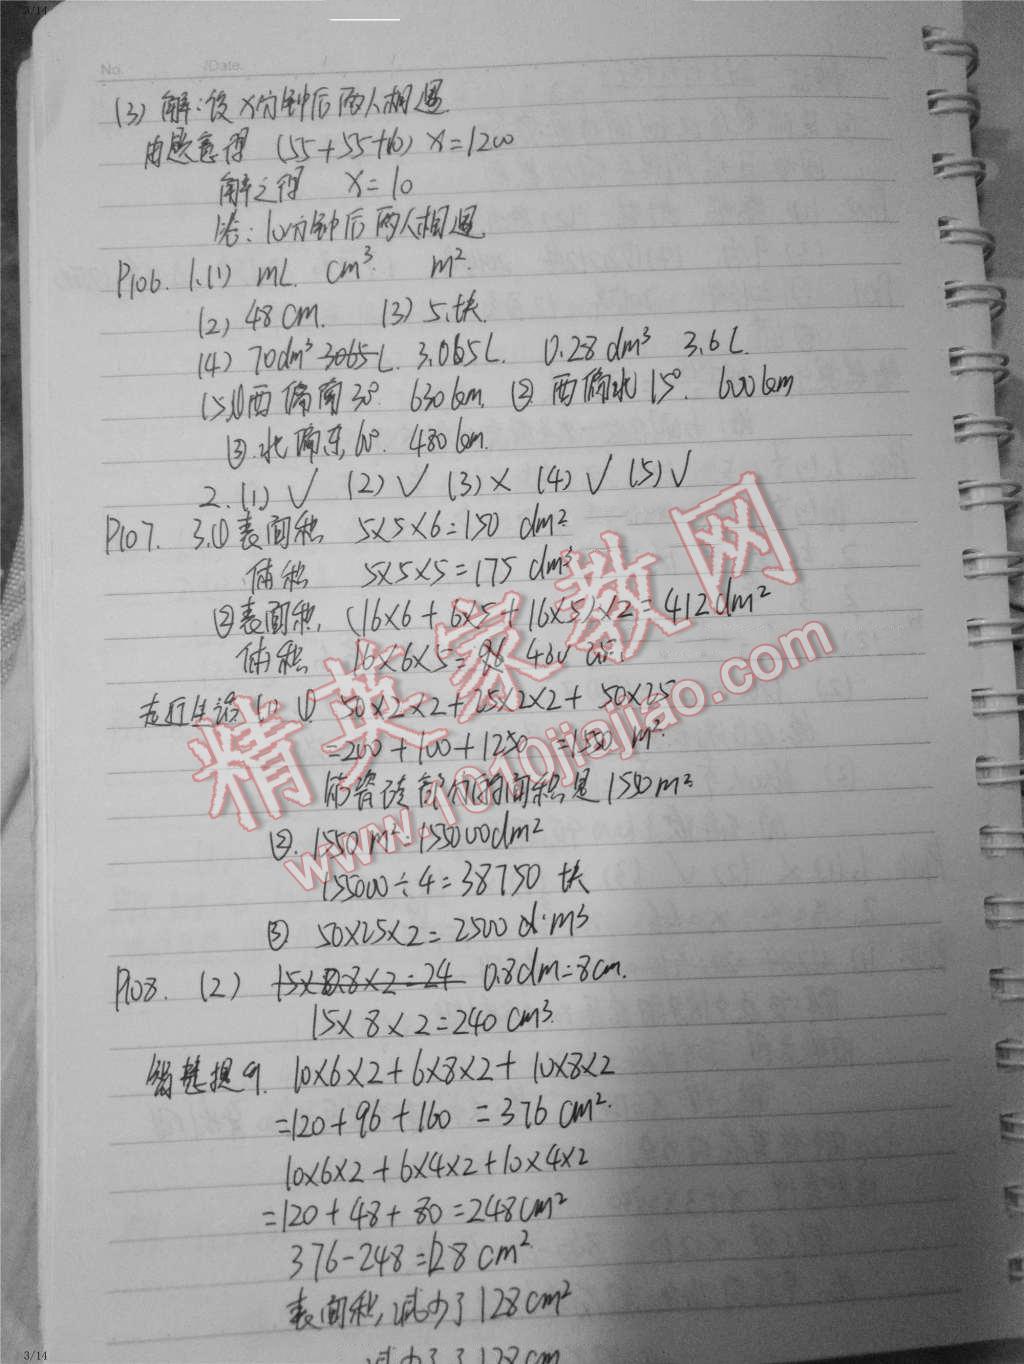 3/14
No. /Date. / /
(3) 解:设x分钟后两人相遇
由题意得 (55+55+10) x=1200
解之得 x=10
答:10分钟后两人相遇
P106. 1.(1) mL cm³. m².
(2) 48cm. (3) 5.块.
(4) 70dm³ 3065L 3.065L. 0.28dm³ 3.6L
(5)①西偏南30°. 630km. ② 西偏北15°. 600km
③.北偏东60° 480km.
2.(1)√ (2)√ (3)× (4)√ (5)√
P107. 3.① 表面积 5×5×6=150 dm²
体积 5×5×5=175 dm³
②表面积. (16×6+6×5+16×5)×2=412dm²
体积 16×6×5= 480
走近生活 (1) ① 50×2×2+25×2×2+ 50×25
=200+100+1250 =1550 m².
贴瓷砖部分的面积是1550m²
②. 1550m²=155000dm²
155000÷4=38750 块
③ 50×25×2=2500 d·m³
P108. (2) 15×0.8×2=24 0.8dm=8cm.
15×8×2=240cm³.
智慧提 10×6×2+6×8×2+10×8×2
=120+96+160 =376 cm².
10×6×2+6×4×2+10×4×2
=120+48+80=248cm²
376-248=128cm²
表面积,减少了128cm²
减少了128cm
精英家教网
www.1010jiajiao.com
3/14